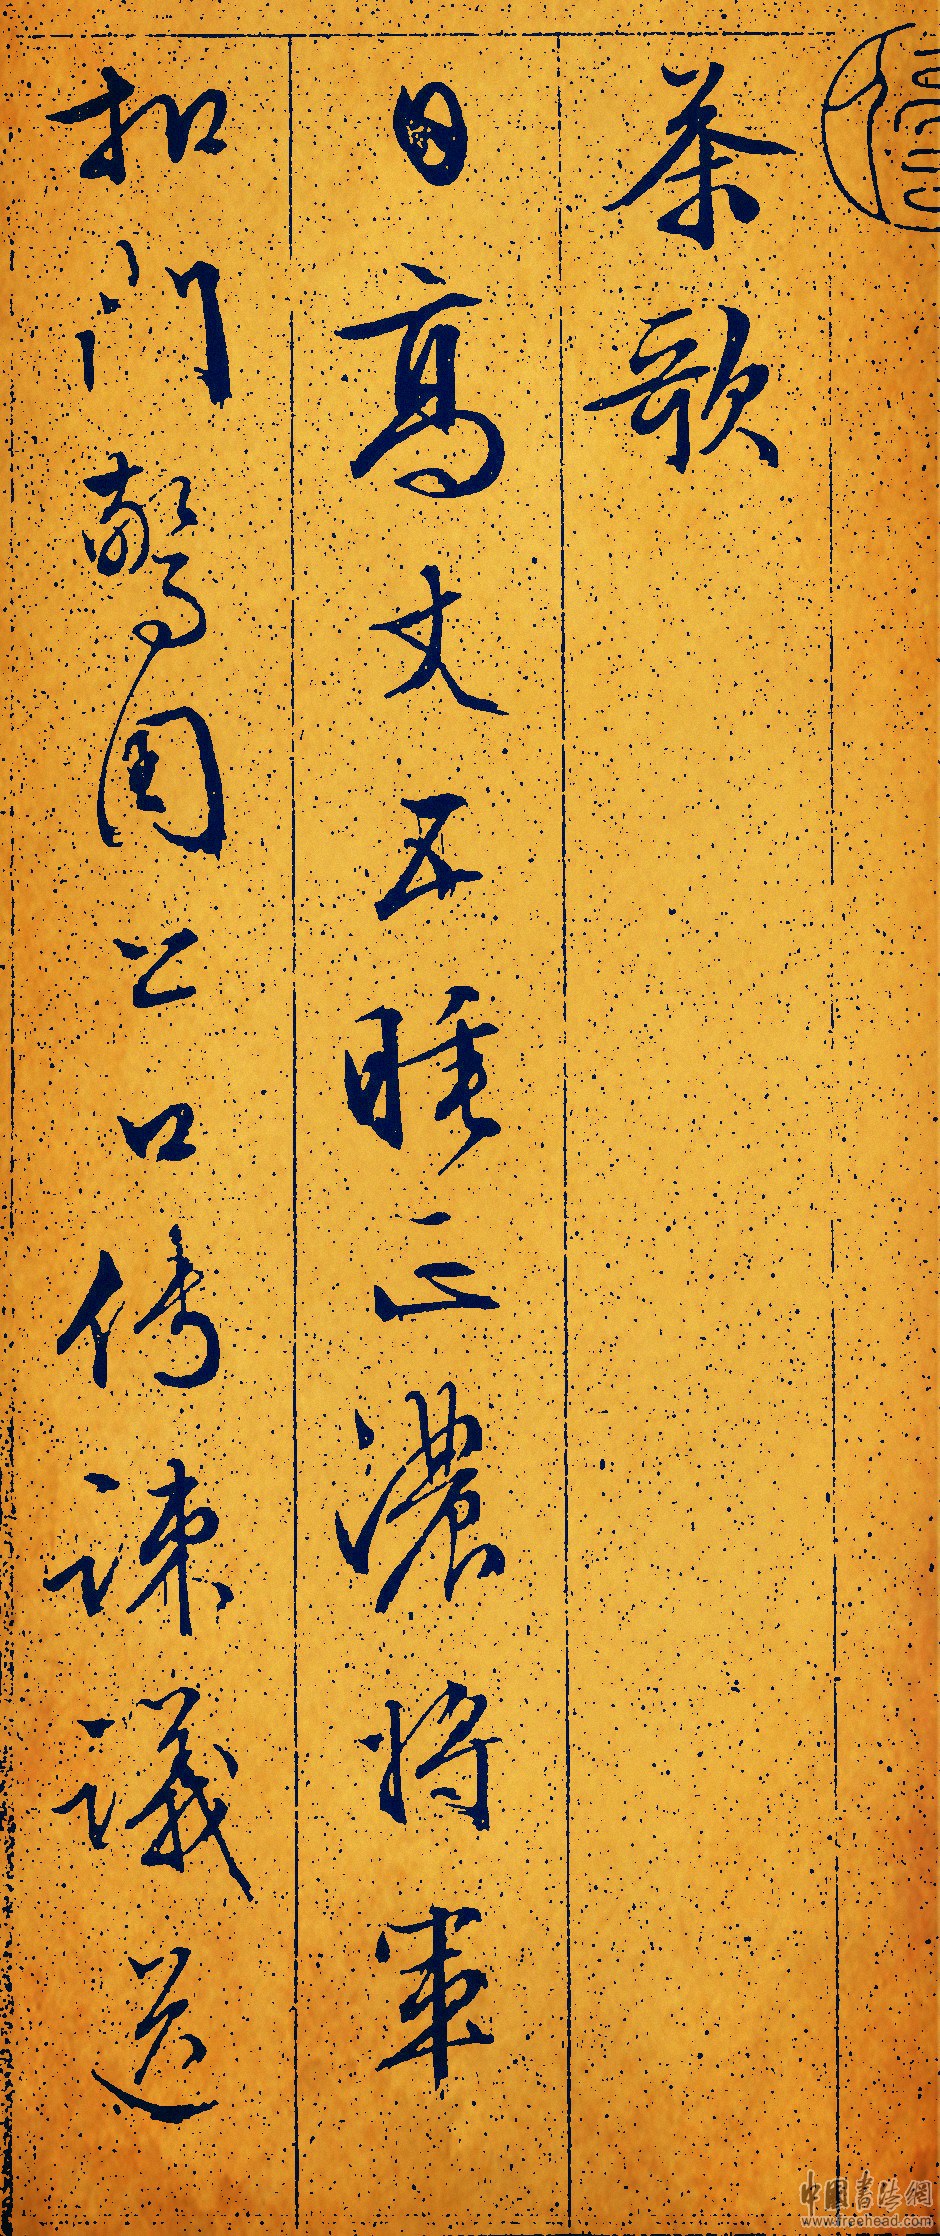 茶歌
日高丈五睡正濃將軍
扣门驚周公口傳諫議送
中国書法網
www.freehead.com